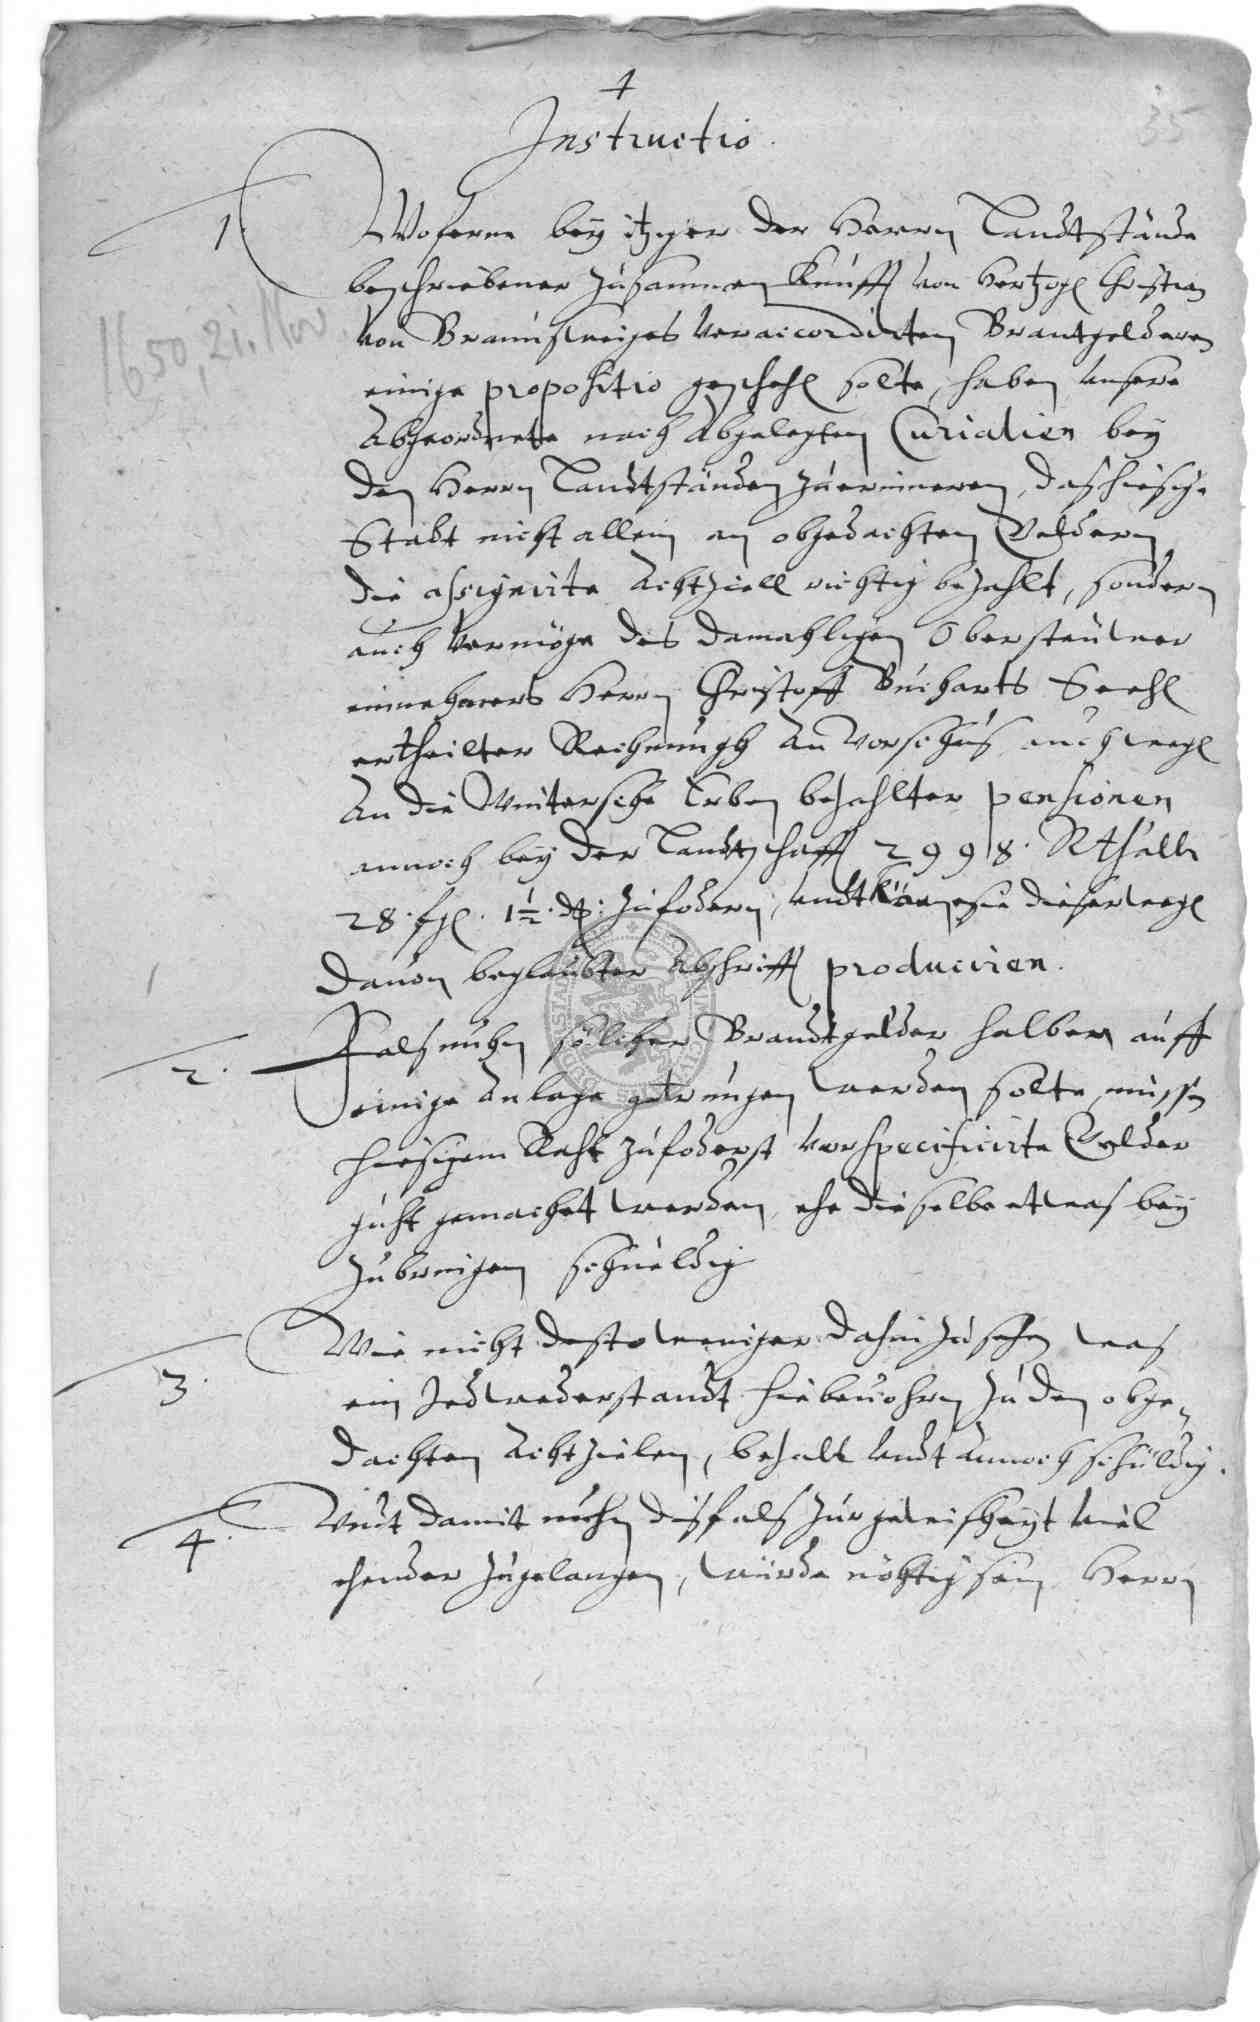 35
Instructio.
1.
Woferne bey itziger der Herrn Landtstände
beschriebener Zusammen Kunfft von Hertzog Christian
von Braunschweiges veraccordirten Brantgelderen
1650, 21. Nov.
einige propositio geschehe solte, haben unsere
Abgeordnete nach abgelegten Curialien bey
den Herrn Landtständen zuerinneren, das hiesige
Stadt nicht allein an obgedachten Geldern
die assignirte Achtziell richtig bezahlt, sondern
auch vermöge des damahligen Obersteur
einnehmers Herrn Christoff Bucharts Seehl
ertheilter Rechnungh an Vorschus auch wege
an die Wintersche Erben bezahlter pensionen
annoch bey der Landtschafft 2998. Rthall
28. fg. 1½ ₰: zufodern, undt Können sie dieserwege
davon beglaubter Abschrifft produciren.
2.
Fals nuhn solcher Brandtgelder halber auff
einige Anlage getrungen werden solte, müssen
hiesigem Raht zufoderst vorspecificirte Gelder
guht gemachet werden, ehe dieselbe etwas bey
zubringen schuldig
3.
Wie nicht desto weniger dahin zusehen was
ein Jedwederstandt hiebevohrn zu den obge-
dachten Achtzielen, bezalt undt annoch schuldig.
4.
Undt damit nuhn disfals zur gewisheyt viel
ehender zugelangen, würde nöhtig sein Herrn